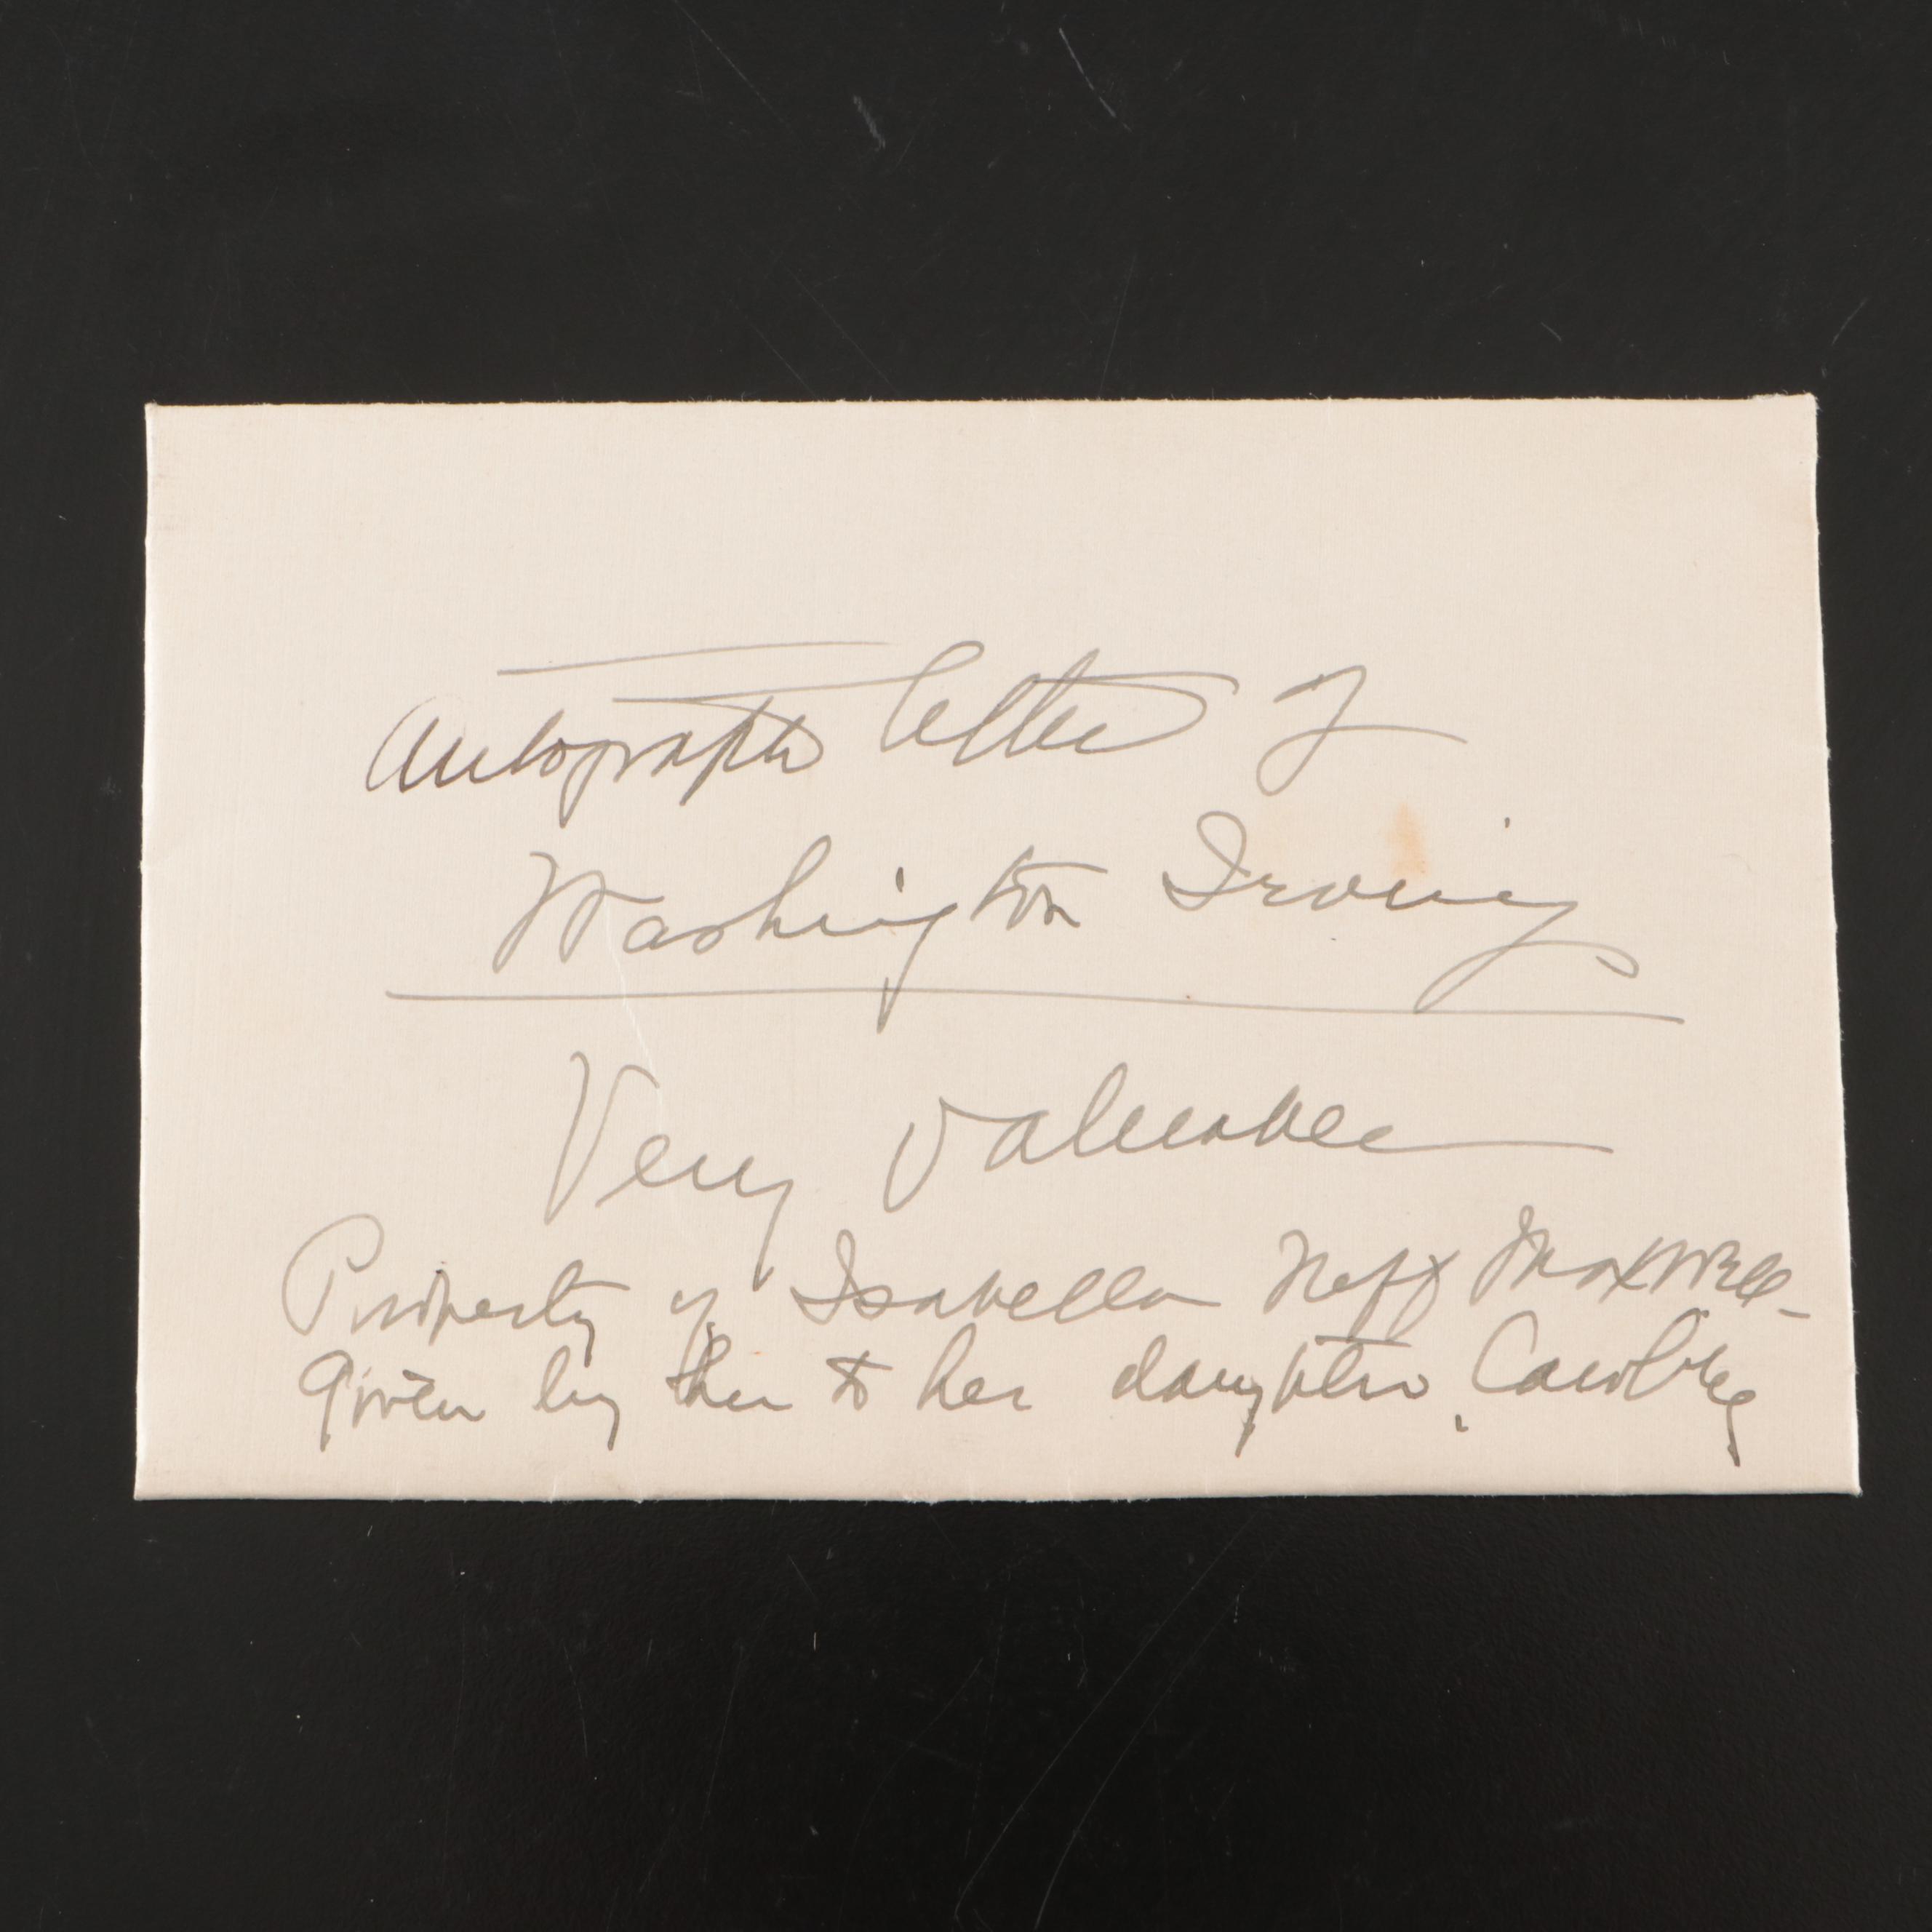 Autograph letter of
Washington Irving
Very Valuable
Property of Isabella Neff Maxwell -
given by her to her daughter,